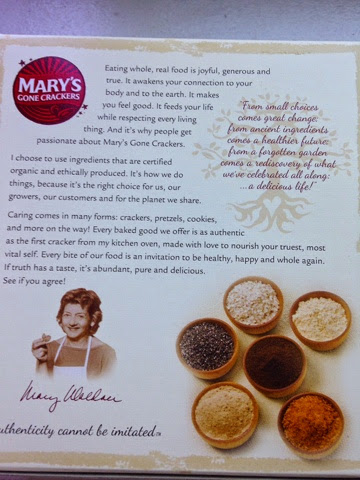 MARY'S
GONE CRACKERS
Eating whole, real food is joyful, generous and
true. It awakens your connection to your
body and to the earth. It makes
you feel good. It feeds your life
while respecting every living
thing. And it's why people get
passionate about Mary's Gone Crackers.
"From small choices
comes great change;
from ancient ingredients
comes a healthier future;
from a forgotten garden
comes a rediscovery of what
we've celebrated all along:
...a delicious life!"
I choose to use ingredients that are certified
organic and ethically produced. It's how we do
things, because it's the right choice for us, our
growers, our customers and for the planet we share.
Caring comes in many forms: crackers, pretzels, cookies,
and more on the way! Every baked good we offer is as authentic
as the first cracker from my kitchen oven, made with love to nourish your truest, most
vital self. Every bite of our food is an invitation to be healthy, happy and whole again.
If truth has a taste, it's abundant, pure and delicious.
See if you agree!
Mary Waldner
uthenticity cannot be imitated.™